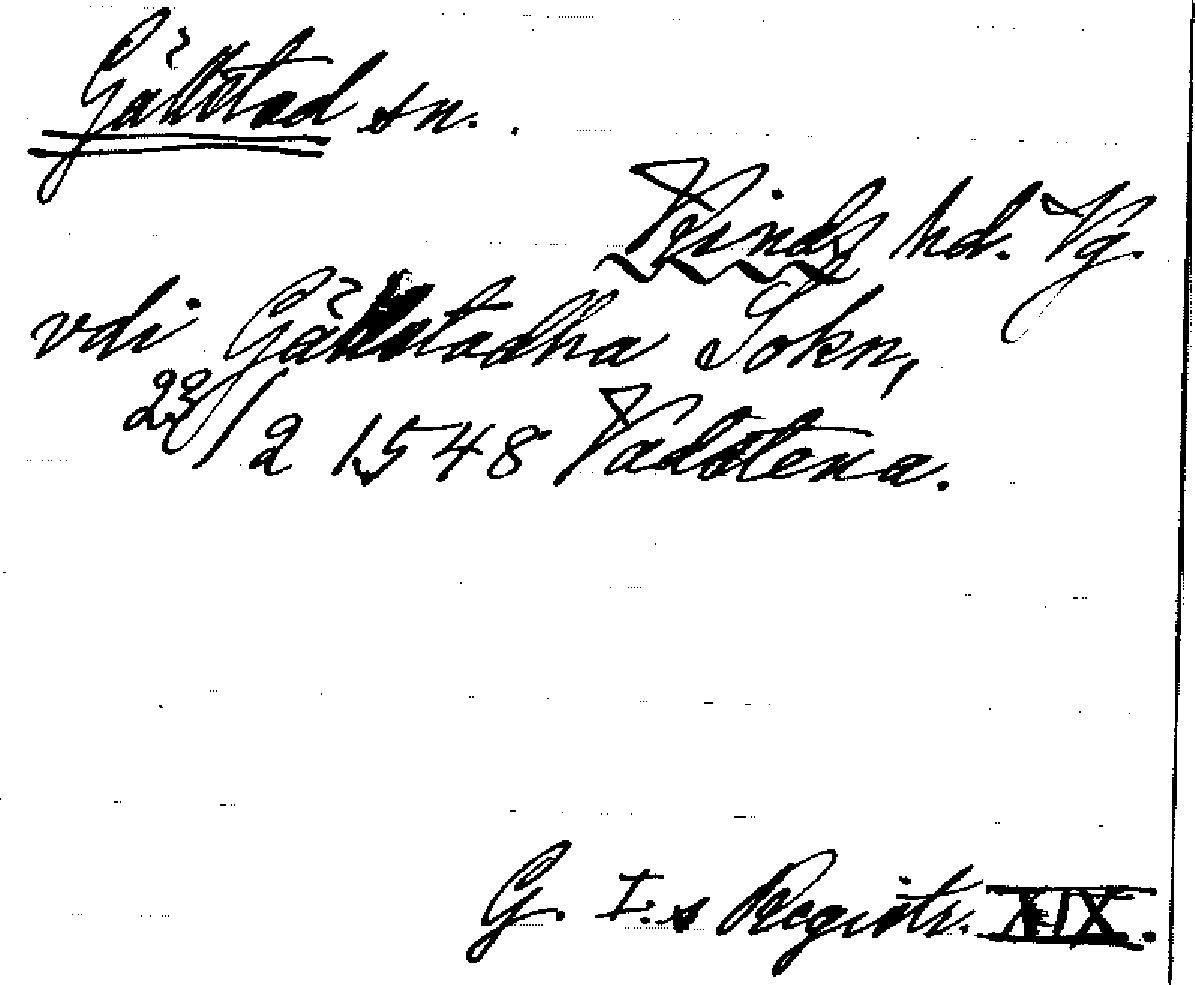 Gällstad sn.
Kinds hd. Vg.
vdi Gällstadha Sokn,
23/2 1548 Vadstena.
G. I:s Registr. XIX.